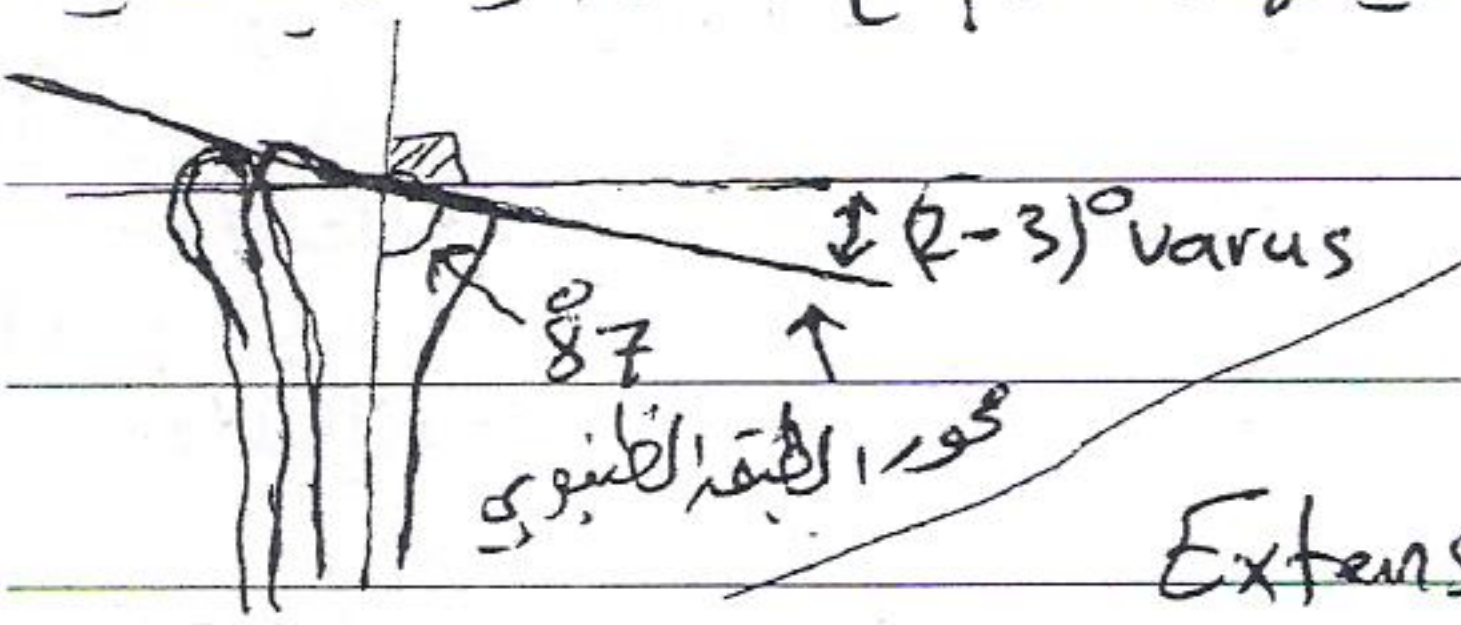 (2-3)° varus
87°
محور الطبق الظنبوبي
Extens